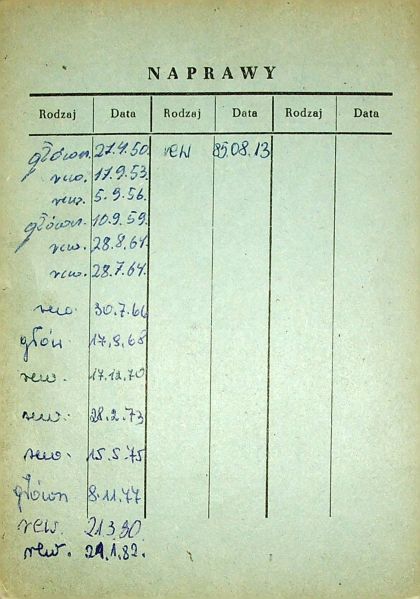 NAPRAWY
Rodzaj Data Rodzaj Data Rodzaj Data
główn. 27.4.50. rew 85.08.13
rew. 17.9.53.
rew. 5.9.56.
główn. 10.9.59.
rew. 28.8.61.
rew. 28.7.64.
rew. 30.7.66
główn 17.8.68
rew. 17.12.70
rew. 28.2.73
rew. 15.5.75
główn 8.11.77
rew. 21.3.80.
rew. 29.1.82.